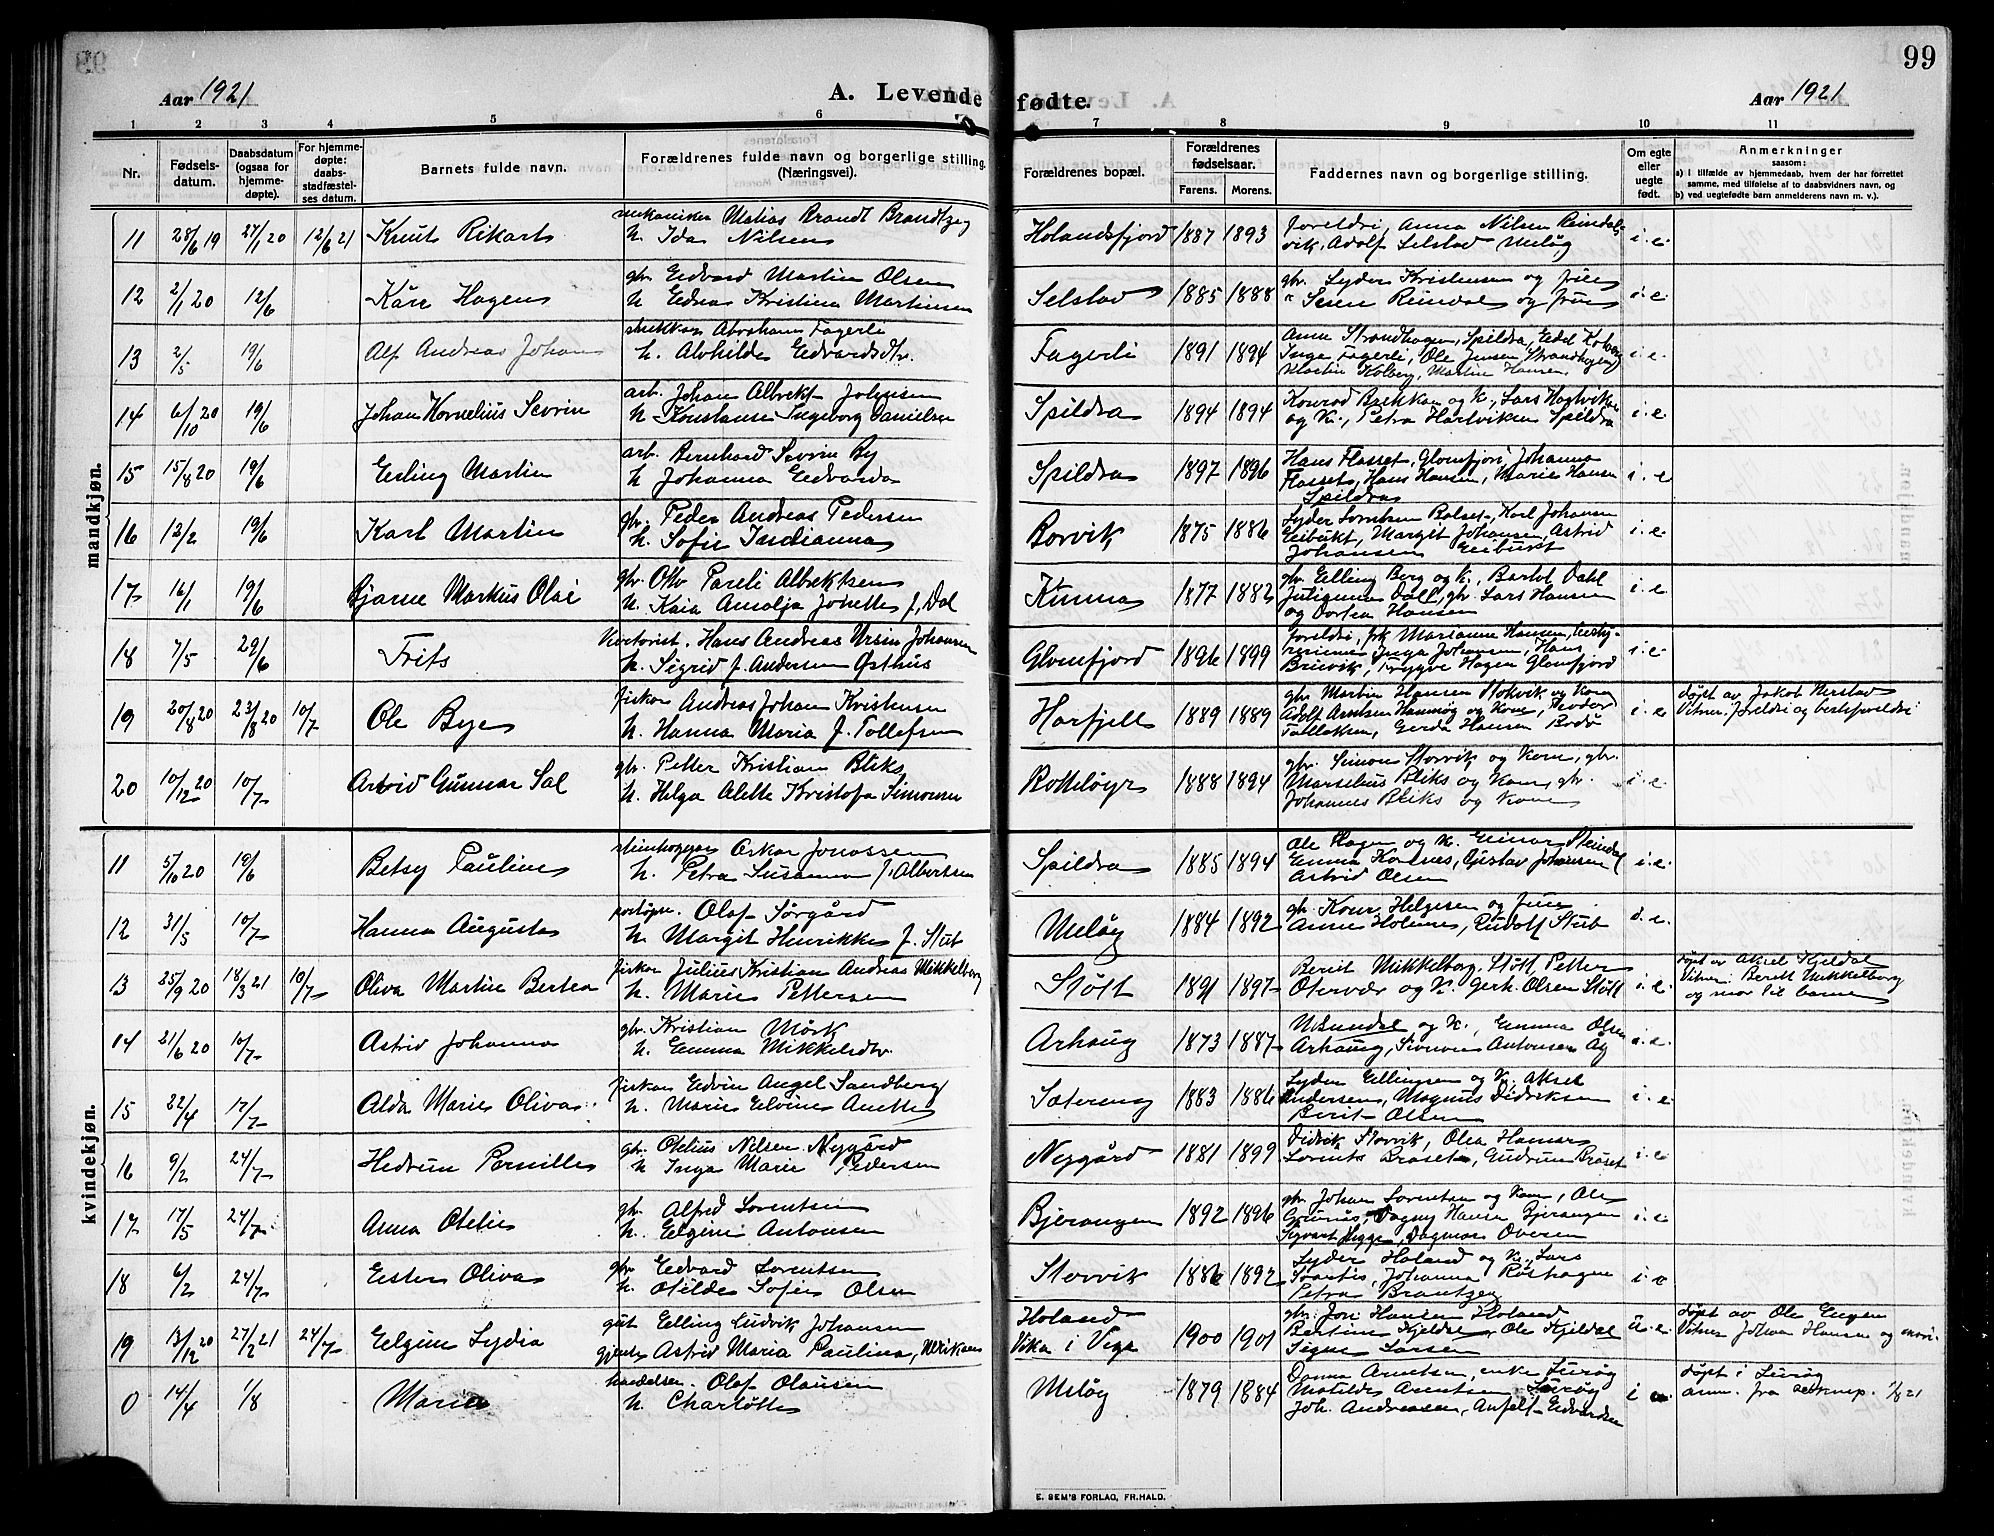 99
Aar 1921
A. Levende fødte.
Aar 1921
1 2 3 4 5 6 7 8 9 10 11
Nr.
Fødsels-
datum.
Daabsdatum
(ogsaa for
hjemme-
døpte).
For hjemme-
døpte:
daabs-
stadfæstel-
ses datum.
Barnets fulde navn.
Forældrenes fulde navn og borgerlige stilling.
(Næringsvei).
Forældrenes bopæl.
Forældrenes
fødselsaar.
Farens. Morens.
Faddernes navn og borgerlige stilling.
Om egte
eller
uegte
født.
Anmerkninger
saasom:
a) I tilfælde av hjemmedaab, hvem der har forrettet
samme, med tilføielse af to daabsvidners navn, og
b) ved uegtefødte barn anmelderens navn m. v.).
mandkjøn.
11 28/6 19 27/1 20 12/6 21 Knut Rikart
mekaniker Matias Brandt Brandtzeg
h. Ida Nilsen
Holandsfjord 1887 1893
Foreldri, Anna Nilsen Reindals-
vik, Adolf Selstad Meløy
i. e.
12 2/1 20 12/6 Kåre Hagen
gbr Edvard Martin Olsen
h Edna Kristina Martinsen
Selstad 1885 1888
gbr. Syder Kristensen og frue
" Reindal og frue
i. e.
13 2/5 19/6 Alf Andreas Johan
Abraham Fagerli
h. Alvhilde Edvardsdtr.
Fagerli 1891 1894
Anne Strandhagen, Spildra, Edel Kolberg
Inga Fagerli, Ole Jensen Strandhagen
Martin Kolberg, Martin Hansen.
i. e.
14 6/10 20 19/6 Johan Kornelius Sevrin
arb. Johan Albrekt Johnsen
h Konstanse Ingeborg Danielsen
Spildra 1894 1894
Konrad Brekkan og k., Lars Hartviksen
og k., Petra Hartviksen Spildra
i. e.
15 15/8 20 19/6 Erling Martin
arb. Bernhard Sevrin By
h Johanna Edvarda
Spildra 1897 1896
Hans Flasset, Glomfjori Johanna
Flasset, Hans Hansen, Marie Hansen
Spildra
i. e.
16 12/2 19/6 Karl Martin
gbr. Peder Andreas Pedersen
h. Sofie Indianna
Borvik 1875 1886
Syder Karl Johansen
Eeibukt, Margit Johansen, Astrid
Johansen Eeibukt
i. e.
17 16/1 19/6 Bjarne Markus Olai
gbr. Otto Pareli Albrektsen
h. Kaia Amalja Jonette f. Dal
Kunna 1877 1882
gbr Elling Berg og k., Bartol Dahl
Dall, gbr. Lars Hansen
og Dortea Hansen
i. e.
18 7/5 29/6 Frits
Kontorist. Hans Andreas Ursin Johansen
h. Sigrid f. Andersen Østhus
Glomfjord 1896 1899
foreldri, frk Marianne Hansen,
Inga Johansen, Hans
Breivik, Trygve Hagen Glomfjord
i. e.
19 20/8 20 23/8 20 10/7 Ole Bye
fisker Andreas Johan Kristensen
h. Hanna Maria f. Tollefsen
Harfjell 1889 1889
gbr Martin Hansen Stokvik og kone
Adolf Arntsen Hammøy og Kone, Peder
Tollaksen, Gerda Hansen Bodø
i. e
døpt av Jakob Nerstad
Vitner: foreldri og besteforeldri
20 10/12 20 10/7 Astrid Gunnar Sal
gbr. Petter Kristian Bliks
h. Helga Alette Kristofa Simonsen
Bolleløyr 1888 1894
gbr. Simon Storvik og Kone, gbr.
Marselius Bliks og Kone, gbr.
Johannes Bliks og Kone
i. e.
kvindekjøn.
11 5/10 20 19/6 Betsy Pauline
steinhogger Oskar Jonassen
h. Petra Susanna f. Albertsen
Spildra 1885 1894
Ole Hagen og k. Einar Steindal
Emma Korsnes, Gustav Johansen
Astrid Olsen
i. e.
12 31/5 10/7 Hanna Augusta
postøpn. Olaf Sørgård
h. Margit Henrikke f. Stub
Meløy 1884 1892
gbr. Konr. Helgesen og frue
Anna Holmen, Rudolf Stub
i. e.
13 25/9 20 18/3 21 10/7 Oliva Martine Bertea
fisker Julius Kristian Andreas Mikkelborg
h. Marie Pettersen
Støtt 1891 1897
Berit Mikkelborg, Støtt Petter
Otervær og k. Gerh. Olsen Støtt
i. e.
døpt av Aksel Kjeldal
Vitner: Berit Mikkelborg
og mor til barnet
14 21/6 20 10/7 Astrid Johanna
gbr Kristian Mørk
h. Emma Mikkelsdtr.
Arhaug 1873 1887
M. Sundal og k., Emma Olsen
Arhaug, Simon Antonsen Åg
i. e.
15 22/4 17/7 Alda Marie Oliva
fisker Edvin Angel Sandberg
h. Marie Elvine Anette
Sætereng 1883 1886
Syder Ellingsen og k. Aksel
Andersen, Magnus Didriksen
Berit Olsen
i. e
16 9/2 24/7 Hedrun Pernille
gbr. Otelius Nilsen Nygård
h Inga Marie Pedersen
Neygård 1881 1899
Didrik Storvik, Olea Hamar
Lorents Braset, Gudrun Braset
i. e
17 17/5 24/7 Anna Otelie
gbr. Alfred Lorentsen
h. Elgine Antonsen
Bjerangen 1892 1896
gbr. Johan Lorentsen og kone, Ole
Grunås, Dagny Hansen Bjerangen
Sigvart Hegge, Dagmar Ovesen
i. e
18 6/2 24/7 Ester Oliva
gbr Edvard Lorentsen
h. Otelde Sofie Olsen
Storvik 1886 1892
Syder Holand og k., Lars
Svartis, Johanna Røshagen
Petra Brantzeg
i. e
19 13/12 20 27/2 21 24/7 Elgine Lydia
gut Elling Ludvik Johansen
gjente Astrid Maria Paulina, Ulriksen
Holand
Vika i Vega 1900 1901
gbr. Jon Hansen Holand
Bertine Kjeldal, Ole Kjeldal
Signe Larsen
u. e.
døpt av Ole Engen
Vitner Johan Hansen og mori.
0 14/4 1/8 Maria
handelsm. Olaf Olausen
h. Charlotte
Meløy 1879 1884
Danna Arntsen, enke Lurøy
Matilde Arntsen Lurøy
Joh. Andreassen, Anfelt Edvardsen
i e
døpt i Lurøy
anm. fra 1/8 21
E. SEM'S FORLAG, FR.HALD.